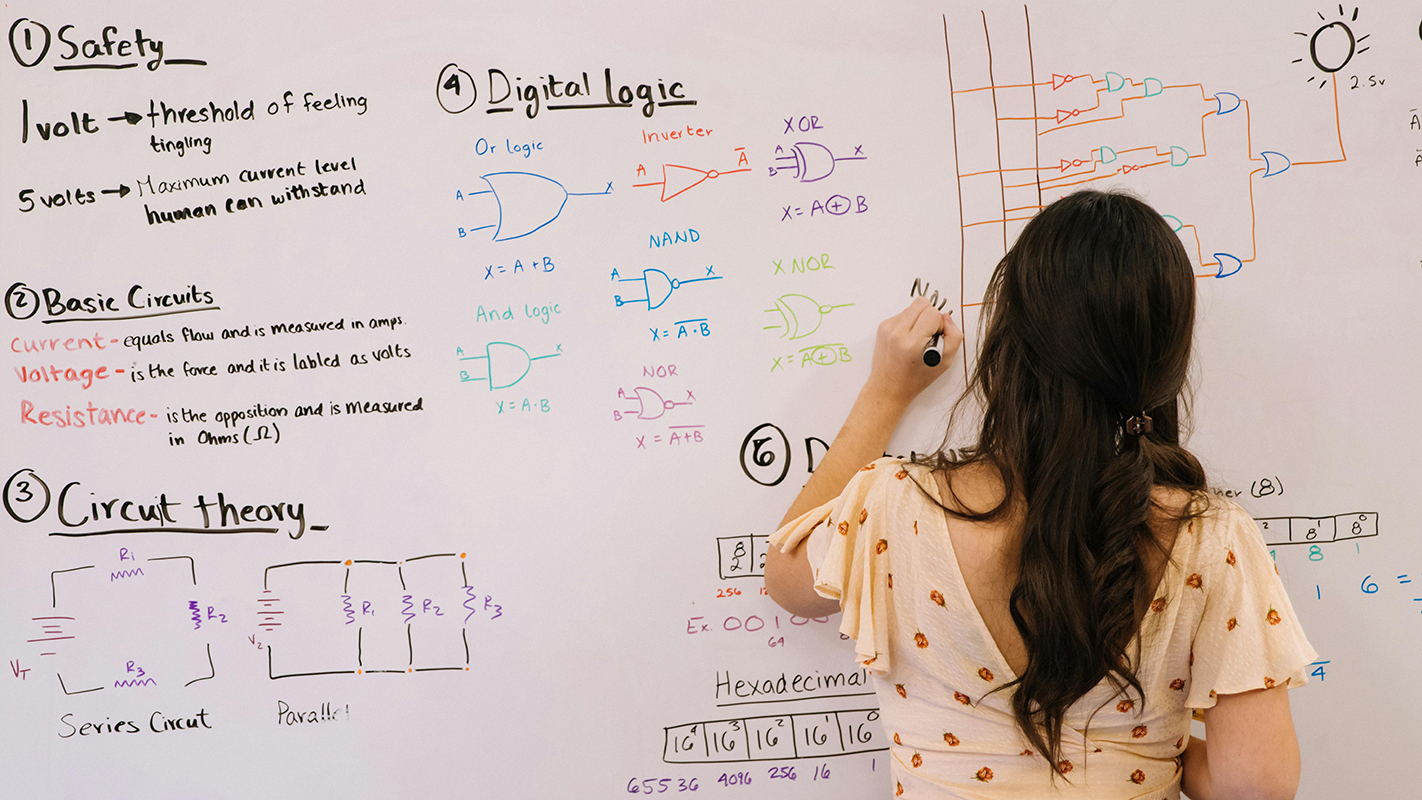 ① Safety
1 volt → threshold of feeling
tingling
5 volts → Maximum current level
human can withstand
② Basic Circuits
Current - equals flow and is measured in amps.
Voltage - is the force and it is labled as volts
Resistance - is the opposition and is measured
in Ohms (Ω)
③ Circuit theory
R₁
R₂
R₃
VT
Series Circut
V₂
R₁
R₂
R₃
Parallel
④ Digital logic
Or logic
A
B
X
X = A + B
And logic
A
B
X
X = A · B
Inverter
A
A̅
NAND
A
B
X
X = A̅ ̅·̅ ̅B̅
NOR
A
B
X
X = A̅+̅B̅
XOR
A
B
X
X = A ⊕ B
X NOR
X = A̅ ̅⊕̅ B
2.5v
(8)
8¹ 8⁰
8 1
1 6 =
4
256
Ex. 001
64
Hexadecimal
16⁴ 16³ 16² 16¹ 16⁰
65536 4096 256 16 1